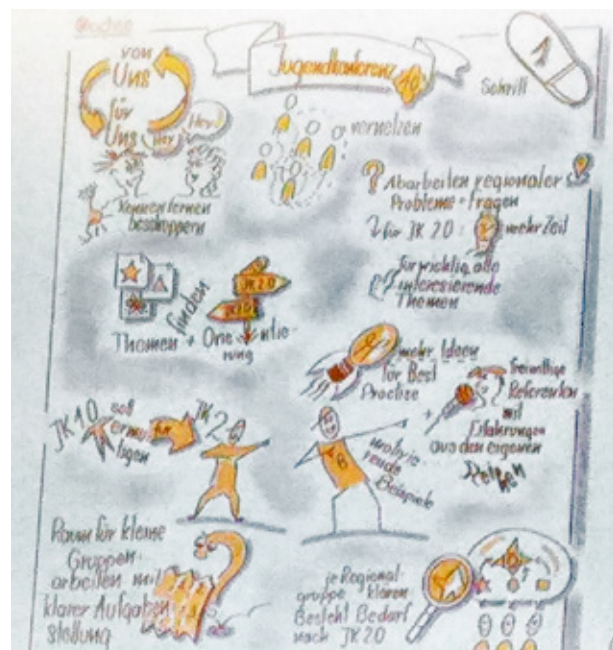 von
Uns
für
Uns
Hey
Hey
Kennenlernen
beschnuppern
Jugendkonferenz
1.0
vernetzen
1
Schritt
? Abarbeiten regionaler
Probleme + Fragen
für JK 2.0: mehr Zeit
für wichtig, alle
interessierende
Themen
Themen finden + Orientie-
rung
JK 2.0
mehr Ideen
für Best
Practice
+ freiwillige
Referenten
mit
Erfahrungen
aus den eigenen
Reihen
JK 1.0 soll
ermu-
tigen
JK 2.0
Beispiele
Raum für kleine
Gruppen-
arbeiten mit
klarer Aufgaben
stellung
je Regional-
gruppe klären
Besteht Bedarf
nach JK 2.0